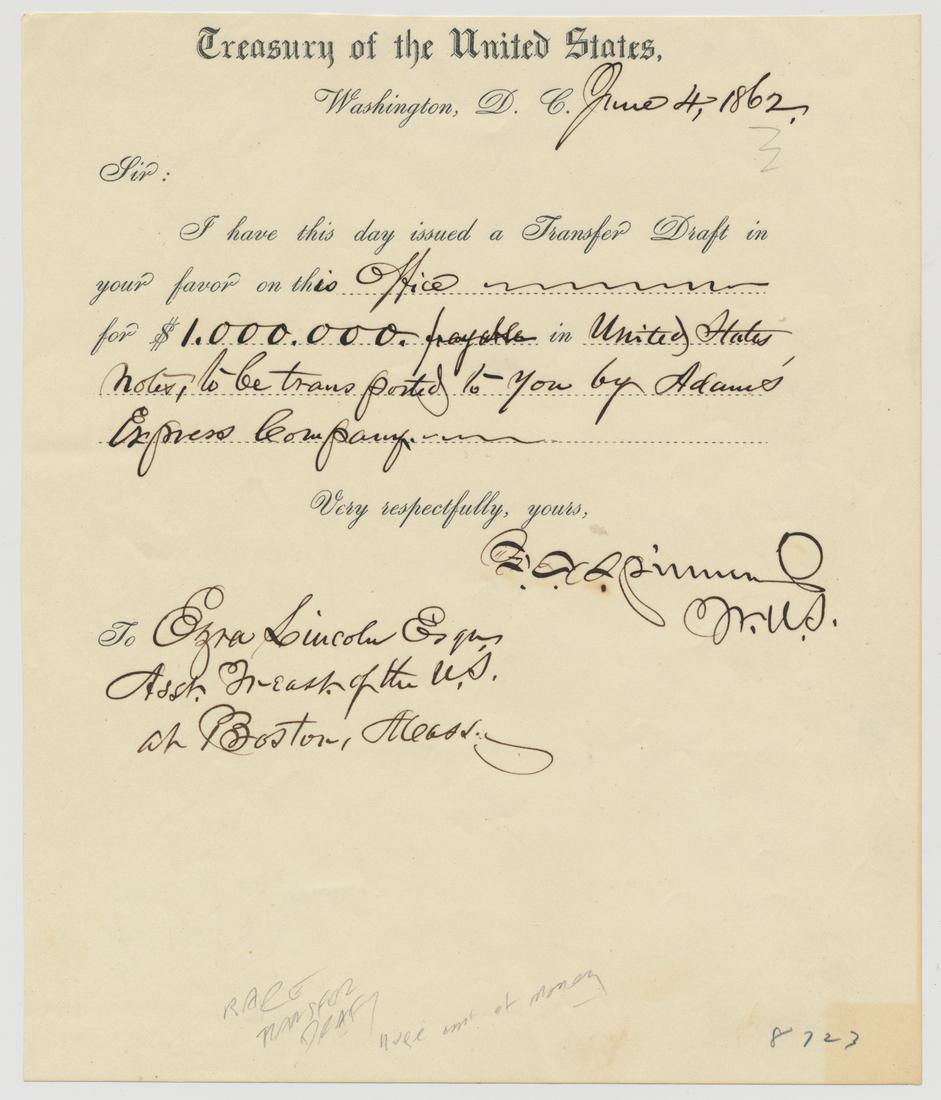 Treasury of the United States,
Washington, D. C. June 4, 1862.
Sir:
I have this day issued a Transfer Draft in
your favor on this Office
for $1.000.000. payable in United States
Notes, to be transported to you by Adams'
Express Company.
Very respectfully, yours,
F. E. Spinner
Tr. U.S.
To Ezra Lincoln Esqr,
Asst. Treast. of the U.S.
at Boston, Mass.
RARE
TRANSFER
DRAFT
Huge amt of money
8723